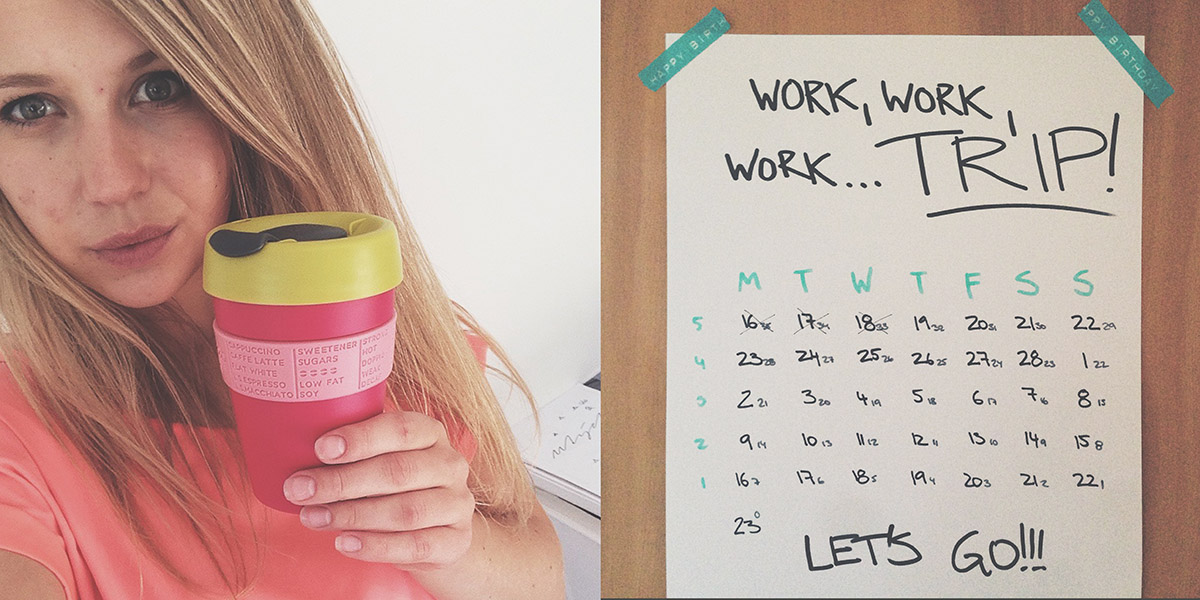 CAPPUCCINO
CAFFE LATTE
FLAT WHITE
ESPRESSO
MACCHIATO
SWEETENER
SUGARS
LOW FAT
SOY
HOT
WEAK
HAPPY BIRTH
PPY BIRTHDAY
WORK, WORK,
WORK... TRIP!
M T W T F S S
5 16 35 17 34 18 33 19 32 20 31 21 30 22 29
4 23 28 24 27 25 26 26 25 27 24 28 23 1 22
3 2 21 3 20 4 19 5 18 6 17 7 16 8 15
2 9 14 10 13 11 12 12 11 13 10 14 9 15 8
1 16 7 17 6 18 5 19 4 20 3 21 2 22 1
23 0
LET'S GO!!!